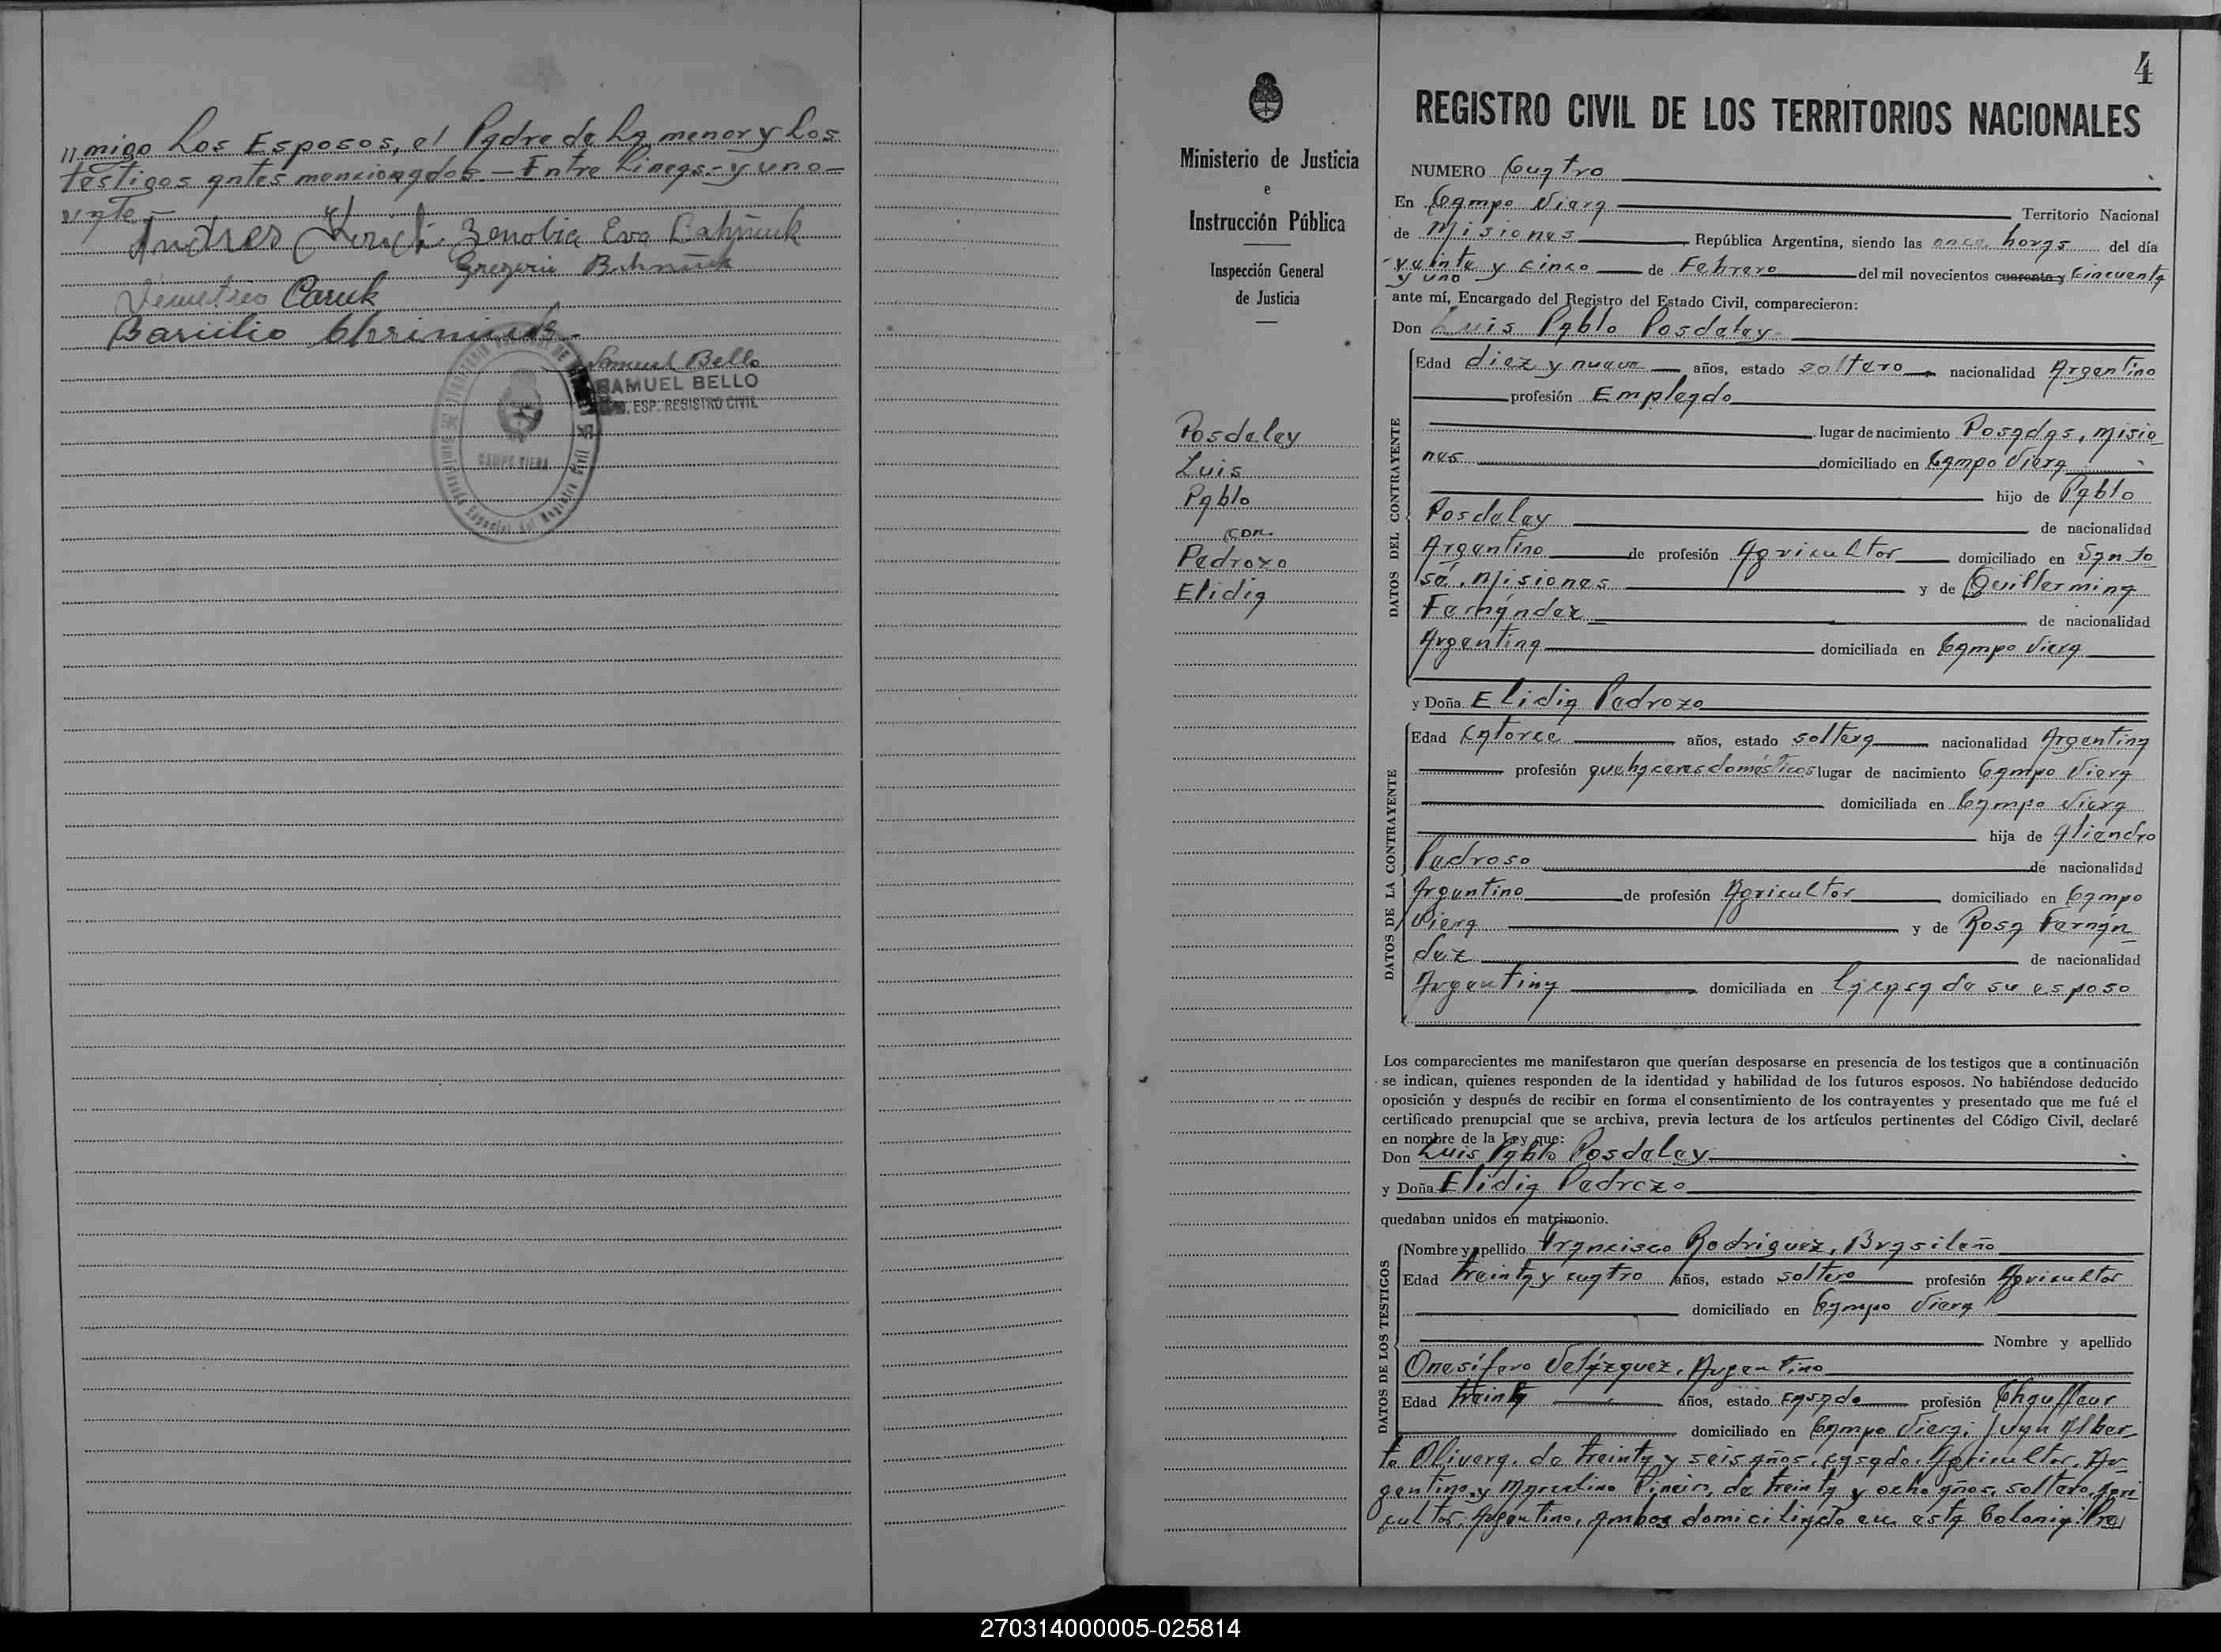 "migo Los Esposos, el Padre de La menor y Los
testigos antes mencionados.- Entre Lineas.- y uno-
vale-
Andres Zenobia Eva
Gregorio
Demetrio Caruk
Basilio
Samuel Bello
SAMUEL BELLO
ESP. REGISTRO CIVIL
CAMPO VIERA
4
Ministerio de Justicia
e
Instrucción Pública
Inspección General
de Justicia
Posdeley
Luis
Pablo
con.
Pedrozo
Elidia
REGISTRO CIVIL DE LOS TERRITORIOS NACIONALES
NUMERO Cuatro
En Campo Viera Territorio Nacional
de Misiones República Argentina, siendo las once horas del día
veinte y cinco de Febrero del mil novecientos cuarenta y Cincuenta
y uno
ante mí, Encargado del Registro del Estado Civil, comparecieron:
Don Luis Pablo Posdeley
DATOS DEL CONTRAYENTE
Edad diez y nueve años, estado soltero nacionalidad Argentino
profesión Empleado
lugar de nacimiento Posadas, Misio
nes domiciliado en Campo Viera
hijo de Pablo
Posdeley de nacionalidad
Argentino de profesión Agricultor domiciliado en Santo
Misiones y de Guillermina
Fernández de nacionalidad
Argentina domiciliada en Campo Viera
y Doña Elidia Pedrozo
DATOS DE LA CONTRAYENTE
Edad Catorce años, estado soltera nacionalidad Argentina
profesión quehaceres domésticos lugar de nacimiento Campo Viera
domiciliada en Campo Viera
hija de Aliendro
Pedroso de nacionalidad
Argentino de profesión Agricultor domiciliado en Campo
Viera y de Rosa Fernán
dez de nacionalidad
Argentina domiciliada en La casa de su esposo
Los comparecientes me manifestaron que querían desposarse en presencia de los testigos que a continuación
se indican, quienes responden de la identidad y habilidad de los futuros esposos. No habiéndose deducido
oposición y después de recibir en forma el consentimiento de los contrayentes y presentado que me fué el
certificado prenupcial que se archiva, previa lectura de los artículos pertinentes del Código Civil, declaré
en nombre de la Ley que:
Don Luis Pablo Posdeley
y Doña Elidia Pedrozo
quedaban unidos en matrimonio.
DATOS DE LOS TESTIGOS
Nombre y apellido Francisco Rodriguez, Brasileño
Edad treinta y cuatro años, estado soltero profesión Agricultor
domiciliado en Campo Viera
Nombre y apellido
Onesífero Velázquez, Argentino
Edad treinta años, estado casado profesión Chauffeur
domiciliado en Campo Viera; Juan Alber
to Olivera, de treinta y seis años, casado, Agricultor, Ar
gentino y Marcelino de treinta y ocho años, soltero, Agri
cultor, Argentino, ambos domiciliado en esta Colonia.
270314000005-025814